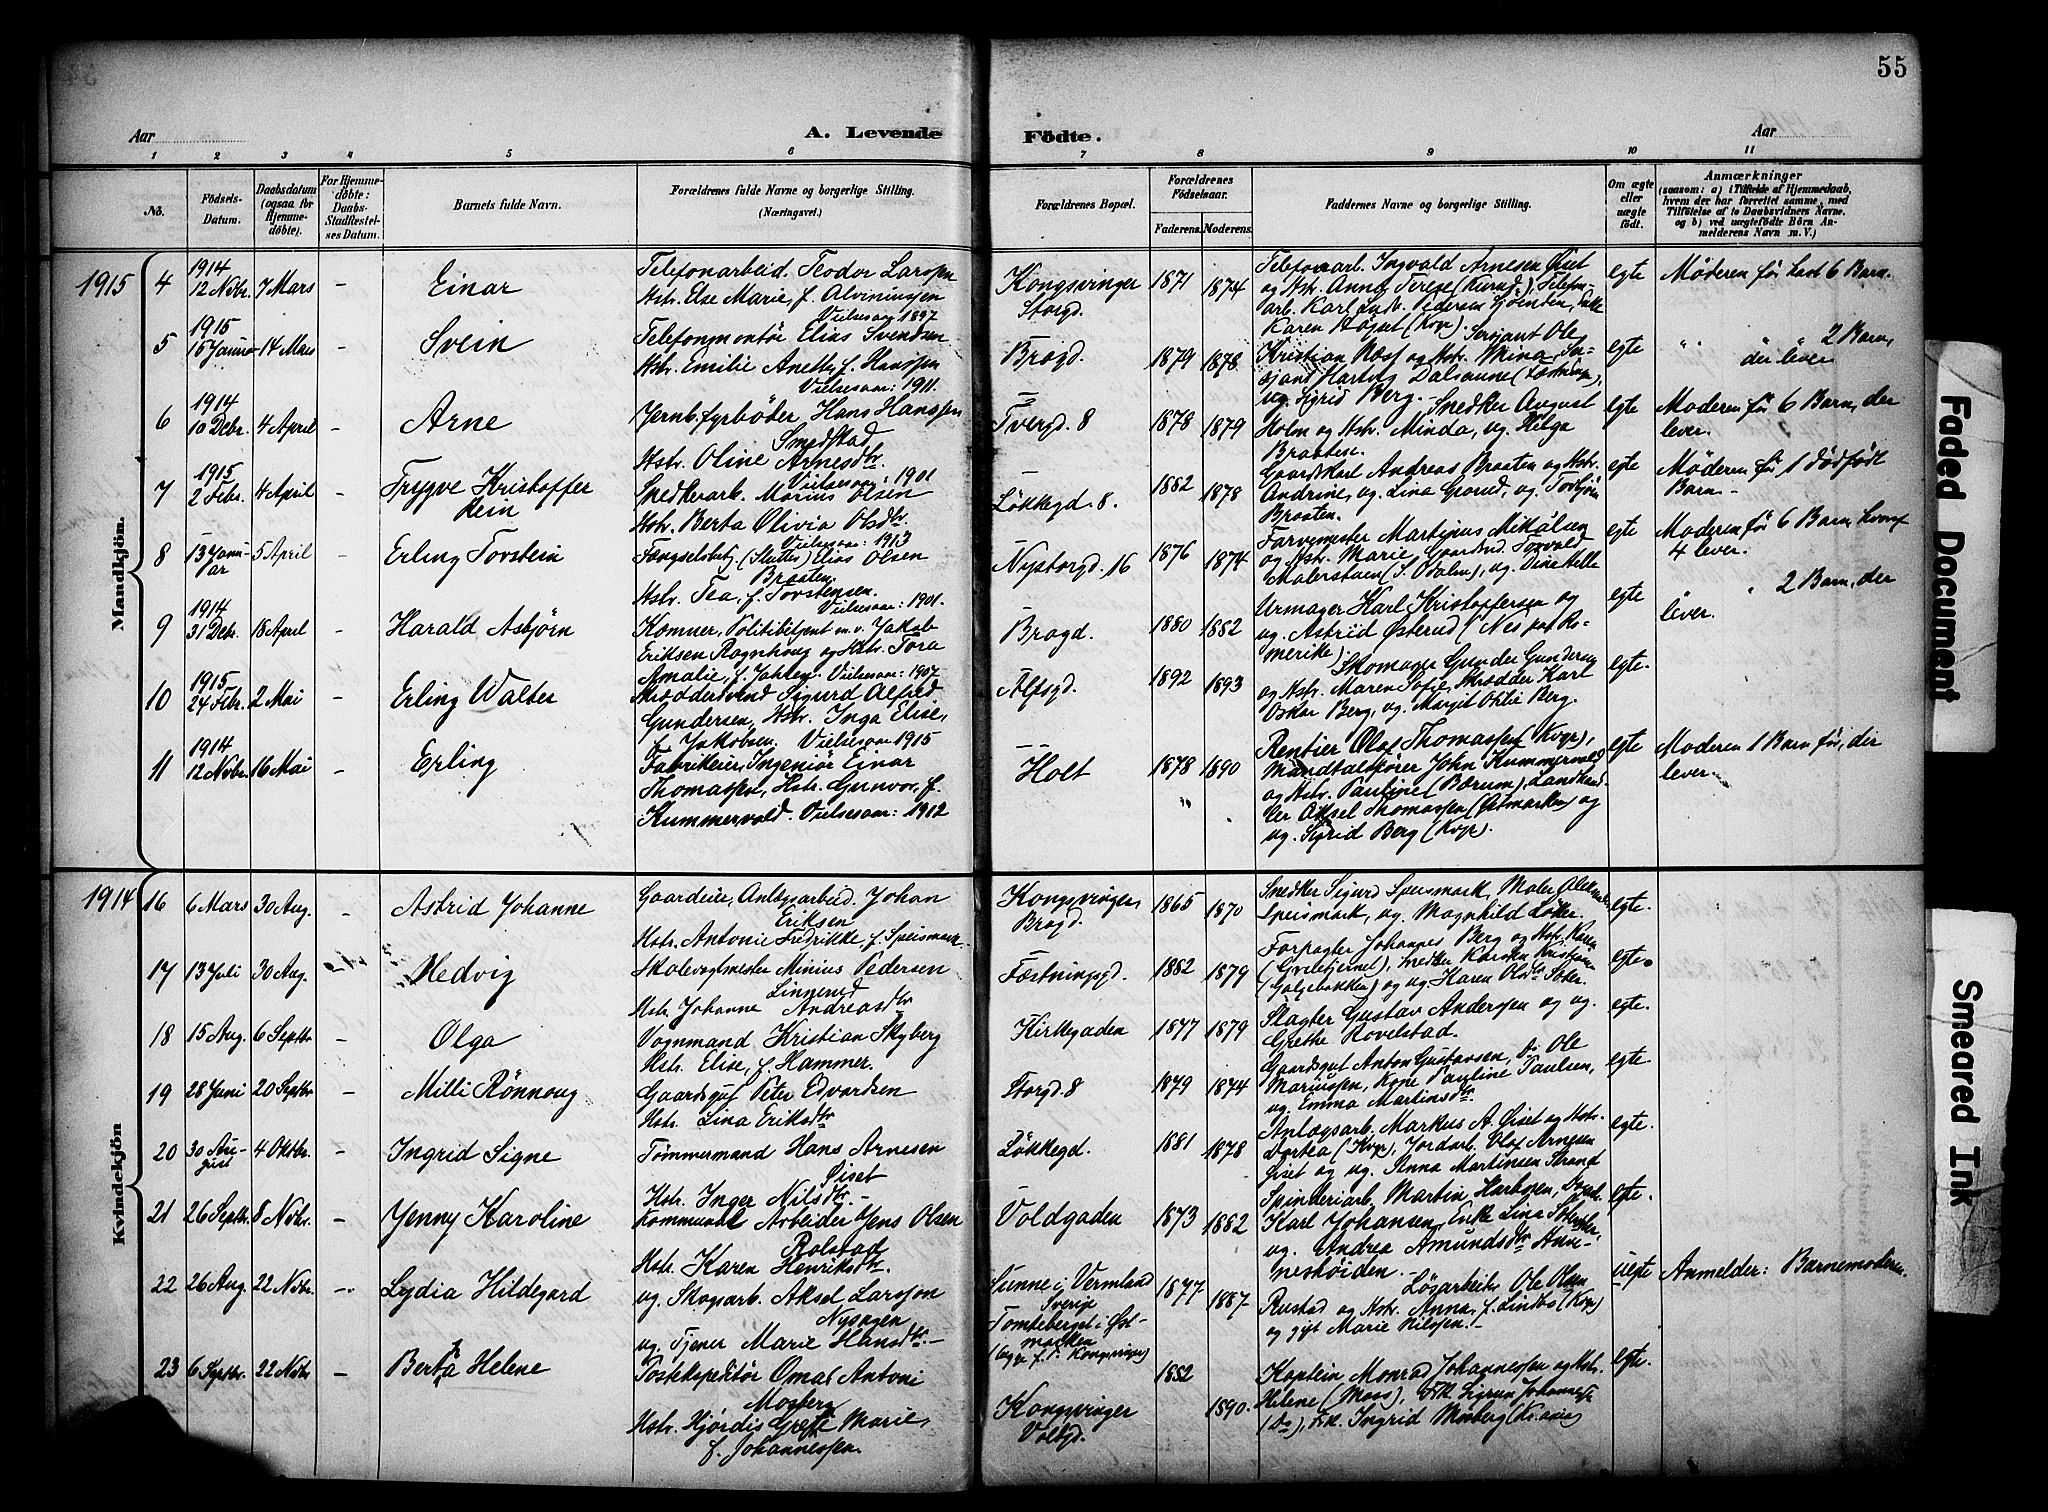 55
Aar
A. Levende
Födte.
Aar
1 2 3 4 5 6 7 8 9 10 11
No.
Födsels-
Datum.
Daabsdatum
(ogsaa for
Hjemme-
døbte).
For Hjemme-
døbte:
Daabs-
Stadfestel-
ses Datum.
Barnets fulde Navn.
Forældrenes fulde Navne og borgerlige Stilling.
(Næringsvei.)
Forældrenes Bopæl.
Forældrenes
Födselsaar.
Faderens. Moderens.
Faddernes Navne og borgerlige Stilling.
Om ægte
eller
uægte
født.
Anmærkninger
(saasom: a) i Tilfælde af Hjemmedaab,
hvem der har forrettet samme, med
Tilföielse af to Daabsvidners Navne,
og b) ved uægtefödte Börn An-
melderens Navn m. V.)
Mandkjön.
1915
4 1914 12 Novbr. 7 Mars – Einar
Telefonarbeid. Teodor Larssen
Hstr. Else Marie, f. Alvinussen
Vielsesaar 1897
Kongsvinger
Storgd.
1871 1874
Telefonarb. Ingvald Arnesen Øiset
og Hstr. Anna Terese
Karen Højset (Kvgr).
egte
Moderen før havt 6 Barn.
5 1915 15 Januar 14 Mars – Svein
Telefonmontør Elias Svendsen
Hstr. Emilie Anette, f. Hanssen
Vielsesaar: 1911.
Brogd.
1879 1878
Sersjant Ole
Kristian Næss og Hstr.
ug. Sigrid Berg.
egte
" " 2 Barn,
der lever.
6 1914 10 Debr. 4 April – Arne
Jernb. fyrbøder Hans Hanssen
Smedstad
Hstr. Oline Arnesdtr.
Vielsesaar: 1901
Tvergd. 8
1878 1879
Snedker August
Holm og Hstr. Minda, ug. Helga
Braaten.
egte
Moderen før 6 Barn, der
lever.
7 1915 2 Febr. 4 April – Trygve Kristoffer
Rein
Snedkerarb. Marius Olsen
Hstr. Berta Olivia Olsdtr.
Vielsesaar: 1913
Løkkegd. 8.
1882 1878
Gaardskarl Andreas Braaten og Hstr.
Andrine, ug. Lina Grøud, ug. Torbjørn
Braaten.
egte
Moderen før 1 dødfødt
Barn.
8 13 Januar 5 April – Erling Torstein
Fængselsbetj. (Slutter) Elias Olsen
Braaten.
Hstr. Tea, f. Torstensen.
Vielsesaar: 1901.
Nystorgd. 16
1876 1874
Farvemester Martinus Mikalsen
og Hstr. Marie, Gaardsd. Torvald
Malerstuen (S. Odalen), ug. Dine Melle
egte
Moderen før 6 Barn hvoraf
4 lever.
9 1914 31 Debr. 18 April – Harald Asbjörn
Kemner, Politibetjent m.v. Jakob
Eriksen Rognhaug og Hstr. Tora
Amalie, f. Jahren. Vielsesaar: 1907
Brogd.
1880 1882
Urmager Karl Kristoffersen og
ug. Astrid Østerud (Nes paa Ro-
merike)
egte
" 2 Barn, der
lever.
10 1915 24 Febr. 2 Mai – Erling Walter
Skræddersvend Sigurd Alfred
Gundersen, Hstr. Inga Elise,
f. Jakobsen. Vielsesaar 1915
Alfsgd.
1892 1893
Skomager Gunder Gundersen
og Hstr. Maren Sofie, Skrædder Karl
Oskar Berg, ug. Margit Otilie Berg.
egte
11 1914 12 Novbr. 16 Mai – Erling
Fabrikeier, Ingeniör Einar
Thomassen, Hstr. Gunvor, f.
Kummervold. Vielsesaar: 1912
Holt
1878 1890
Rentier Olaf Thomassen (Kvgr),
Mandtalsfører John Kummervold
og Hstr. Pauline (Bærum), Landhand-
ler Aksel Thomassen (Østmarken) og
ug. Sigrid Berg (Kvgr).
egte
Moderen 1 Barn før, der
lever.
Kvindekjön
1914
16 6 Mars 30 Aug. – Astrid Johanne
Gaardeier, Anlægsarbeid. Johan
Eriksen
Hstr. Antonie Fredrikke, f. Speismark
Kongsvinger,
Brogd.
1865 1870
Snedker Sigurd Speismark, Maler
Speismark, ug. Magnhild Løken
egte.
17 13 Juli 30 Aug. – Hedvig
Skolevagtmester Minius Pedersen
Linnerud
Hstr. Johanne Andreasdtr
Fæstningsgd.
1882 1879
Forpagter Johannes Berg og Hstr. Karen
(Galgebakken) og ug. Karen Olsdtr.
egte.
18 15 Aug. 6 Septbr – Olga
Vognmand Kristian Skyberg
Hstr. Elise, f. Hammer.
Kirkegaden
1877 1879
Slagter Gustav Anderssen og ug.
Grethe Rovelstad.
egte.
19 28 Juni 20 Septbr – Milli Rönnoug
Gaardsgut Peter Edvardsen
Hstr. Lina Eriksdtr
Storgd. 8
1879 1874
Gaardsgut Anton Gustavsen, Do Ole
Mariussen, Kone Pauline Paulsen,
ug. Emma Martinsdtr.
egte.
20 30 August 4 Oktbr. – Ingrid Signe
Tømmermand Hans Arnesen
Øiset
Hstr. Inger Nilsdtr.
Løkkegd.
1881 1878
Anlægsarb. Markus A. Øiset og Hstr.
Dortea (Kvgr), Jordarb. Olaf Arnesen
Øiset og ug. Anna Martinsen Strand
egte.
21 26 Septbr. 8 Novbr. – Jenny Karoline
Kommunal Arbeider Jens Olsen
Rolstad
Hstr. Karen Henriksdtr.
Voldgaden
1873 1882
Spinderiarb. Martin
Karl Johansen, Enke Lina
ug. Andrea Amundsdtr. Anne-
neshöiden.
egte.
22 26 Aug. 22 Novbr. – Lydia Hildegard
ug. Skogsarb. Aksel Larsson
Nysagen
ug. Tjener Marie Hansdtr.
Sunne i Vermland
Sverige
Tomteberget i Øst-
marken
1877 1887
Løsarbeider Ole Olsen
Rustad og Hstr. Anna, f. Lintho (Kvgr)
og gift Marie Nilssen.
uegte
Anmelder: Barnemoderen.
23 6 Septbr. 22 Novbr – Berta Helene
Postekspeditör Omar Antoni
Mosberg
Hstr. Hjördis Grete Marie,
f. Johannessen.
Kongsvinger
Voldgd.
1882 1890.
Kaptein Monrad Johannessen og Hstr.
Helene (Moss), Frk. Sigrun Johannessen
(Do), Frk. Ingrid Mosberg (Kr.ania)
egte.
Faded Document
Smeared Ink